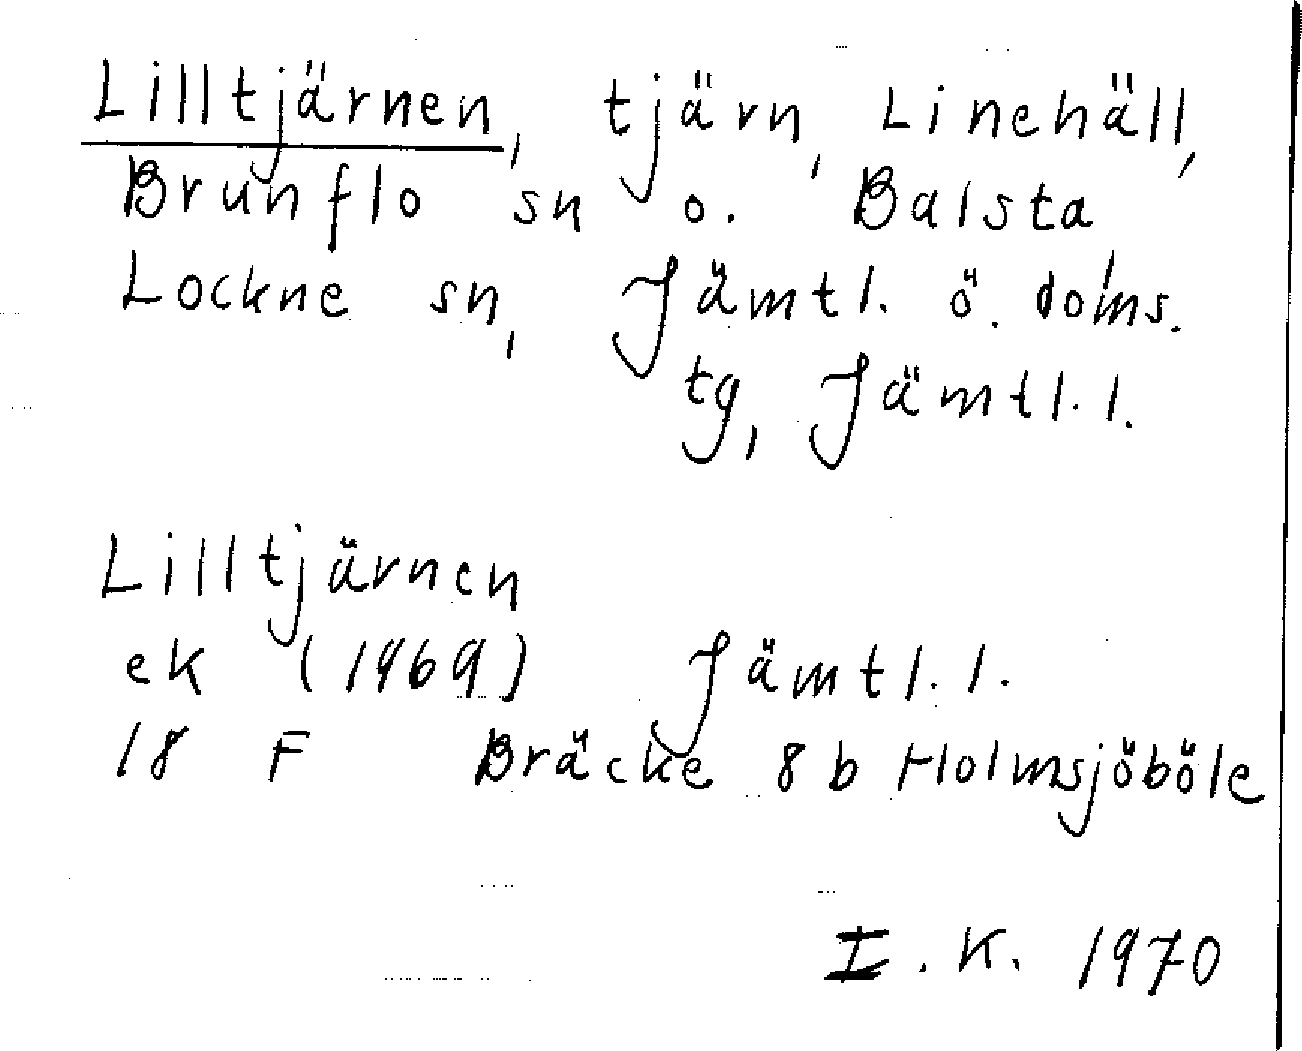 Lilltjärnen, tjärn, Linehäll,
Brunflo sn o. Balsta
Lockne sn, Jämtl. ö. doms.
tg, Jämtl. l.
Lilltjärnen
ek (1969) Jämtl. l.
18 F Bräcke 8 b Holmsjöböle
I. K. 1970